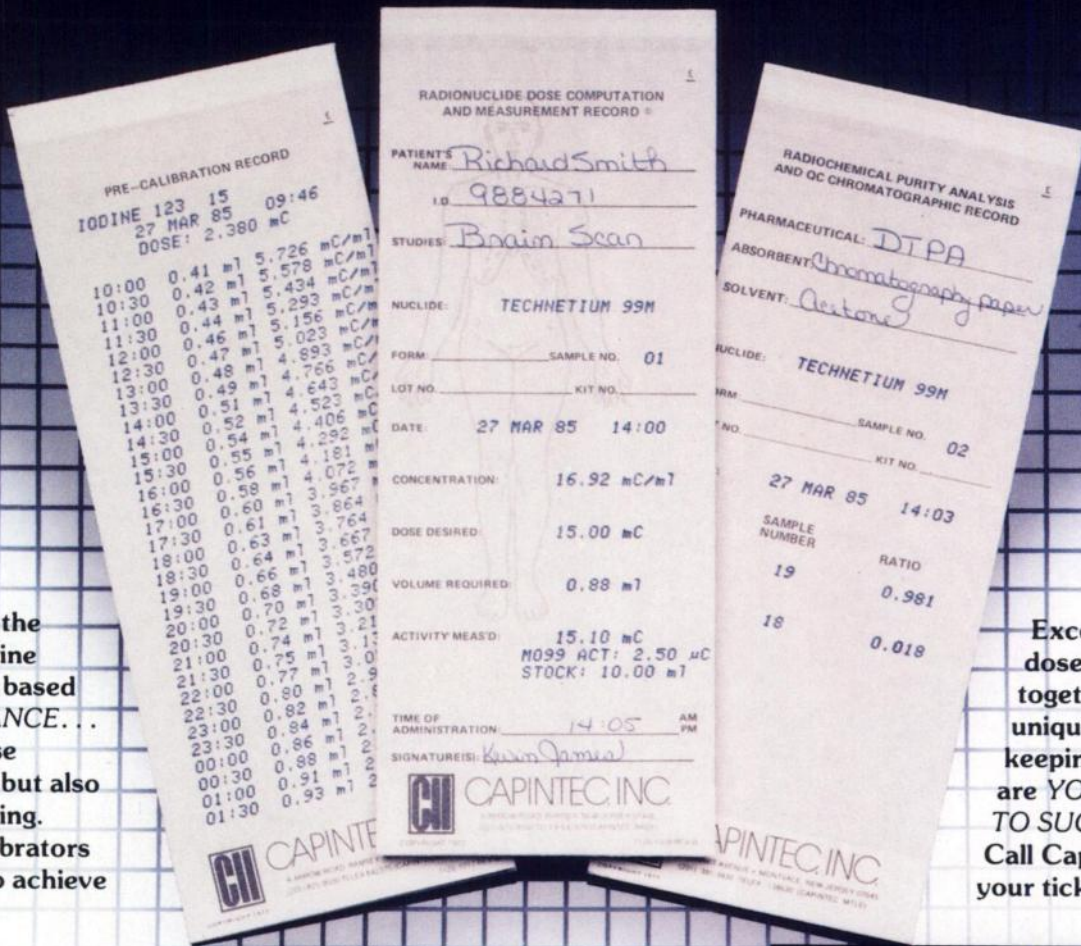 PRE-CALIBRATION RECORD
IODINE 123 15
27 MAR 85 09:46
DOSE: 2.380 mC
10:00 0.41 ml 5.726 mC/ml
10:30 0.42 ml 5.578 mC/ml
11:00 0.43 ml 5.434 mC/m
11:30 0.44 ml 5.293 mC/m
12:00 0.46 ml 5.156 mC/m
12:30 0.47 ml 5.023 mC/m
13:00 0.48 ml 4.893 mC/
13:30 0.49 ml 4.766 mC/
14:00 0.51 ml 4.643 mC/
14:30 0.52 ml 4.523 mC
15:00 0.54 ml 4.406 mC
15:30 0.55 ml 4.292 mC
16:00 0.56 ml 4.181 m
17:00 0.58 ml 4.072 m
17:30 0.60 ml 3.967 m
18:00 0.61 ml 3.864
18:30 0.63 ml 3.764
19:00 0.64 ml 3.667
19:30 0.66 ml 3.572
20:00 0.68 ml 3.480
20:30 0.70 ml 3.390
21:00 0.72 ml 3.30
21:30 0.74 ml 3.21
22:00 0.75 ml 3.13
22:30 0.77 ml 3.0
23:00 0.80 ml 2.9
23:30 0.82 ml 2.8
00:00 0.84 ml 2.
00:30 0.86 ml 2
01:00 0.88 ml 2
01:30 0.91 ml 2
0.93 ml 2
CII CAPINTE
RADIONUCLIDE DOSE COMPUTATION
AND MEASUREMENT RECORD
PATIENT'S NAME Richard Smith
I.D. 9884271
STUDIES: Brain Scan
NUCLIDE: TECHNETIUM 99M
FORM: SAMPLE NO. 01
LOT NO. KIT NO.
DATE: 27 MAR 85 14:00
CONCENTRATION: 16.92 mC/ml
DOSE DESIRED: 15.00 mC
VOLUME REQUIRED: 0.88 ml
ACTIVITY MEAS'D: 15.10 mC
MO99 ACT: 2.50 µC
STOCK: 10.00 ml
TIME OF ADMINISTRATION: 14:05 AM PM
SIGNATURE(S): Kevin James
CII CAPINTEC, INC.
RADIOCHEMICAL PURITY ANALYSIS
AND QC CHROMATOGRAPHIC RECORD
PHARMACEUTICAL: DTPA
ABSORBENT: Chromatography paper
SOLVENT: Acetone
UCLIDE: TECHNETIUM 99M
RM SAMPLE NO. 02
NO. KIT NO.
27 MAR 85 14:03
SAMPLE NUMBER RATIO
19 0.981
18 0.018
APINTEC, INC.
the
ine
based
NCE...
se
but also
ing.
brators
o achieve
Exce
dose
toget
uniqu
keepin
are YO
TO SUC
Call Cap
your tick